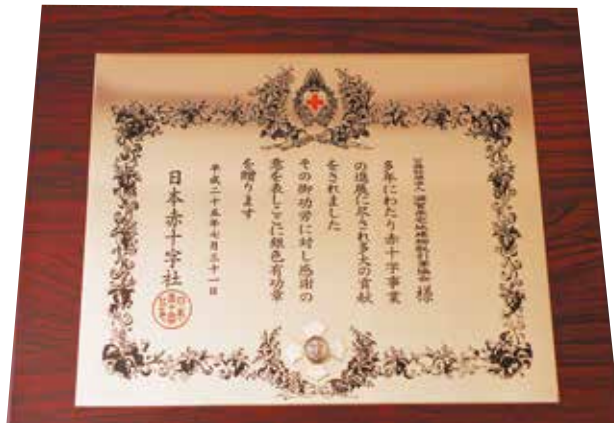 公益社団法人 滋賀県宅地建物取引業協会 様
多年にわたり赤十字事業
の進展に尽され多大の貢献
をされました
その御功労に対し感謝の
意を表しここに銀色有功章
を贈ります
平成二十五年七月三十一日
日本赤十字社